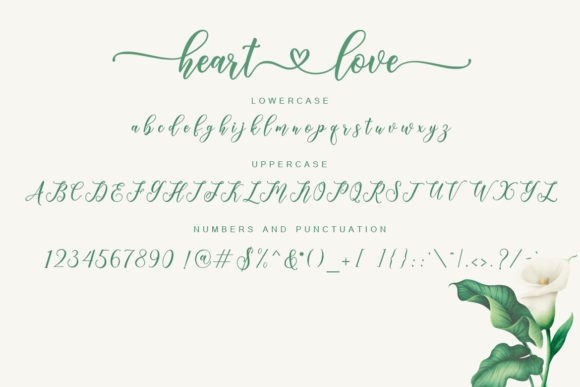 heart love
LOWERCASE
abcdefghijklmnopqrstuvwxyz
UPPERCASE
ABCDEFGHIJKLMNOPQRSTUVWXYZ
NUMBERS AND PUNCTUATION
1234567890 !@#$%^&*()_+[ ]{}:;'\"|,<.>?/~`